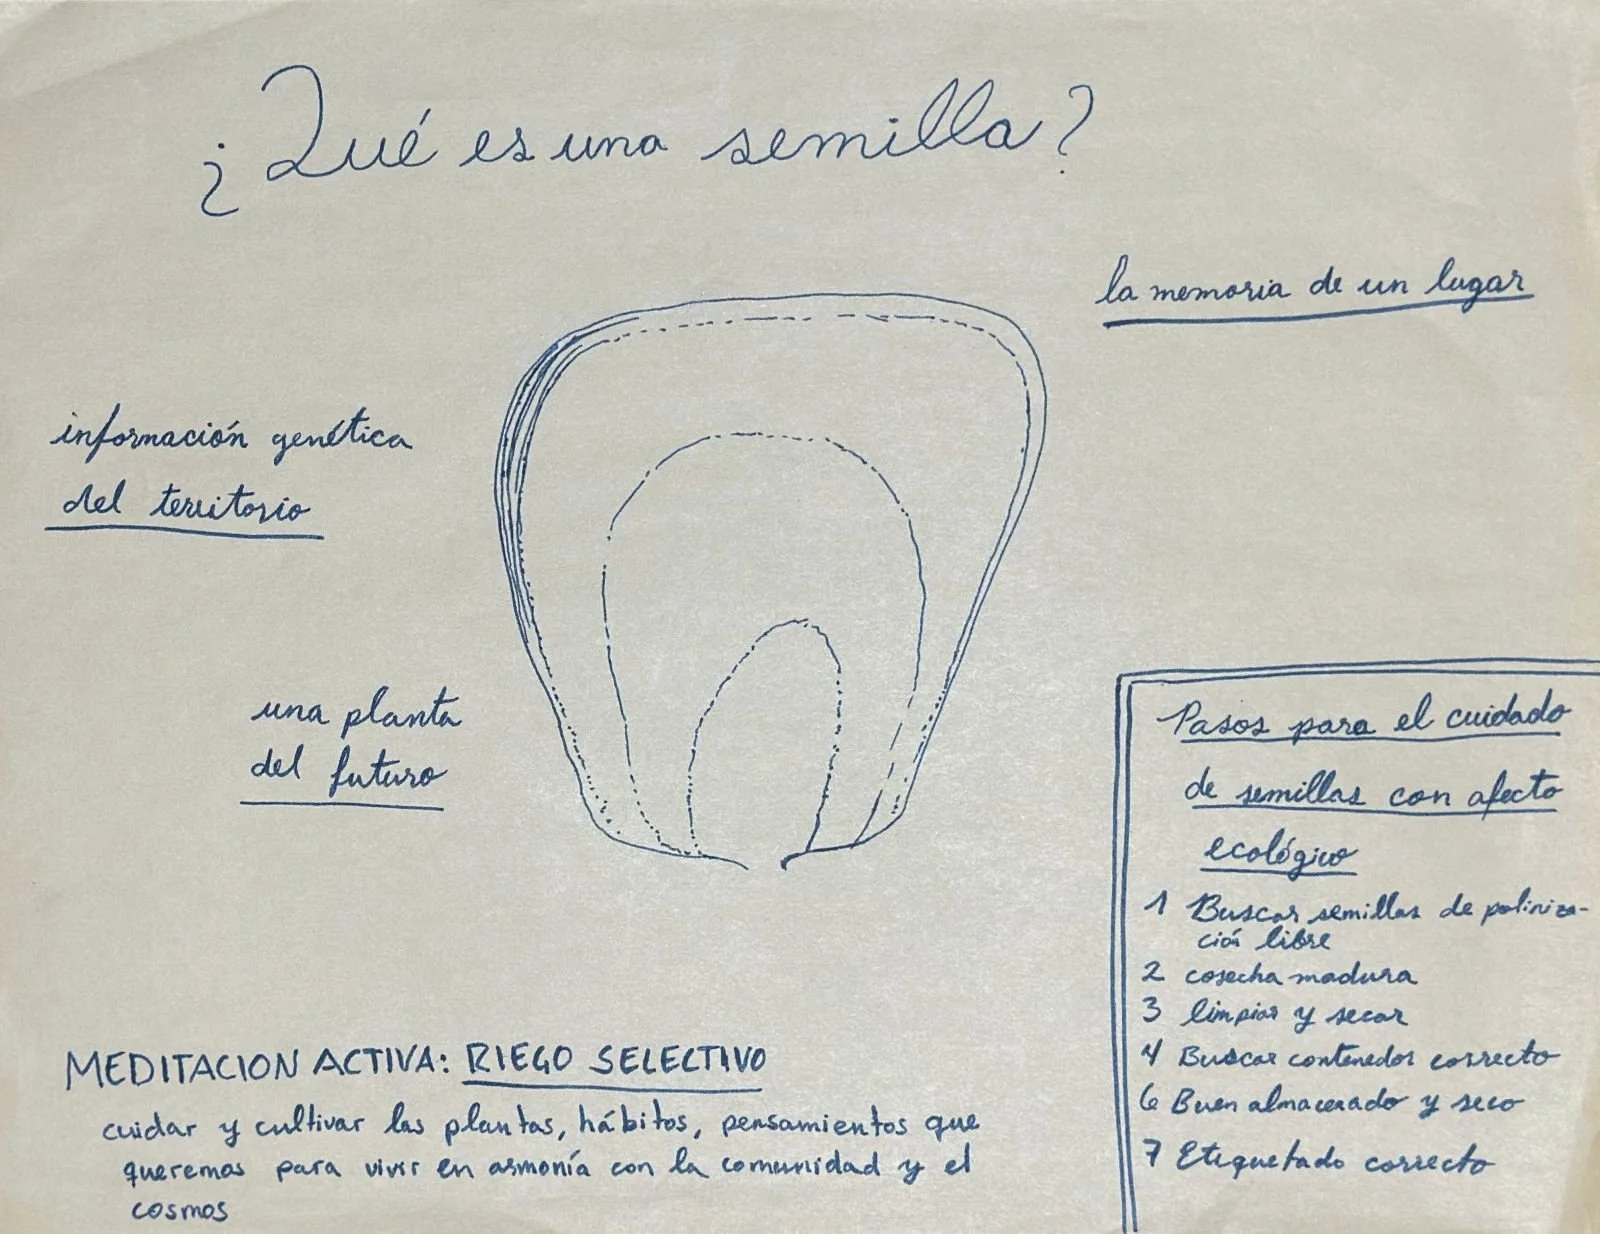 ¿Qué es una semilla?
la memoria de un lugar
información genética
del territorio
una planta
del futuro
Pasos para el cuidado
de semillas con afecto
ecológico
1 Buscar semillas de poliniza-
ción libre
2 cosecha madura
3 limpiar y secar
4 Buscar contenedor correcto
6 Buen almacerado y seco
7 Etiquetado correcto
MEDITACION ACTIVA: RIEGO SELECTIVO
cuidar y cultivar las plantas, hábitos, pensamientos que
queremos para vivir en armonía con la comunidad y el
cosmos